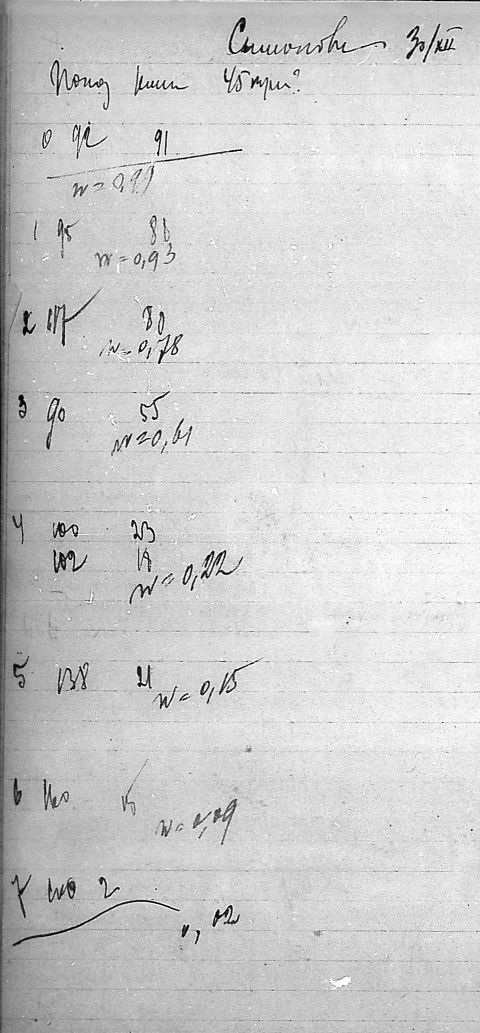 30/XII
45
0 92 91
w = 0,99
1 95 88
w = 0,93
2 117 80
w = 0,78
3 90 55
w = 0,61
4 100 23
102 18
w = 0,22
5 138 21
w = 0,15
6 160 15
w = 0,09
7 100 2
0,02